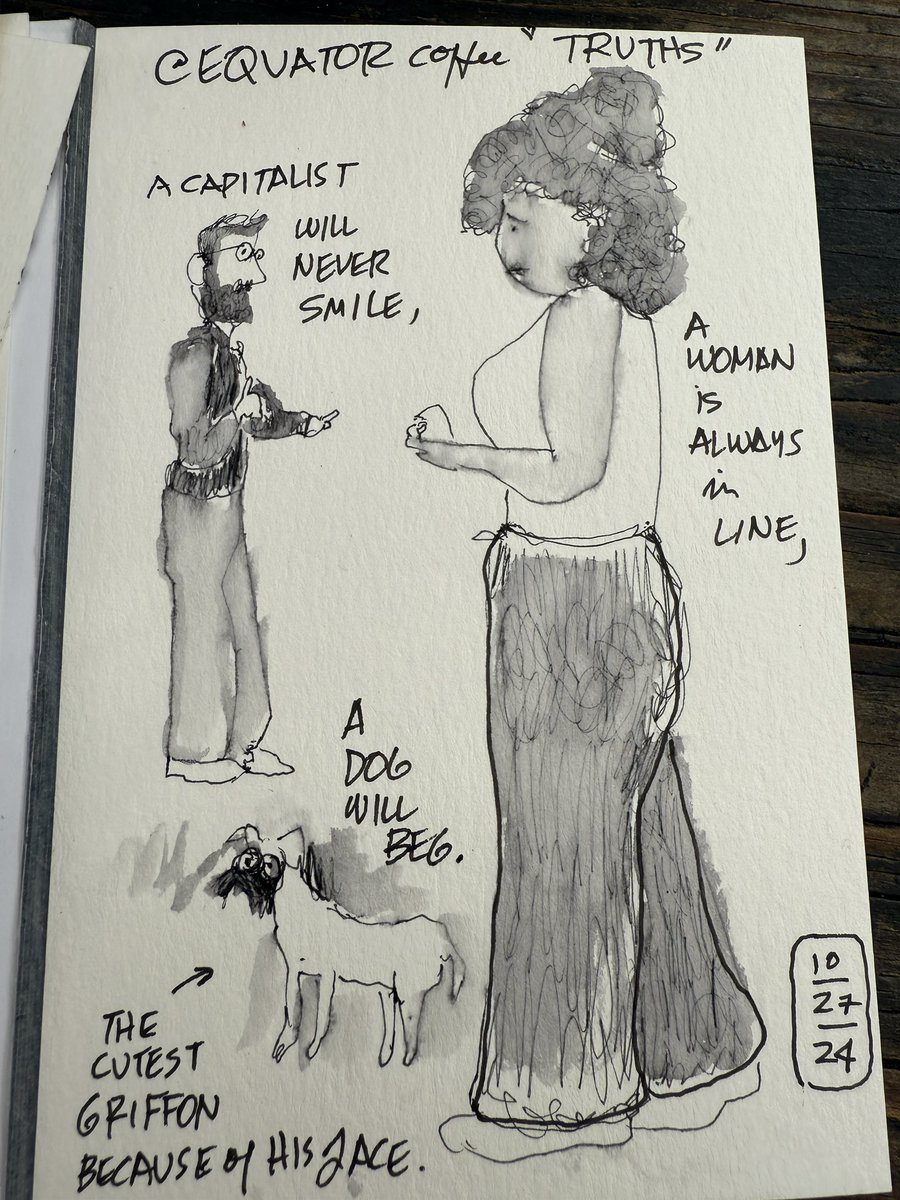 @EQUATOR coffee "TRUTHS"
A CAPITALIST
WILL
NEVER
SMILE,
A
WOMAN
is
ALWAYS
in
LINE,
A
DOG
WILL
BEG.
THE
CUTEST
GRIFFON
BECAUSE of HIS FACE.
10
27
24